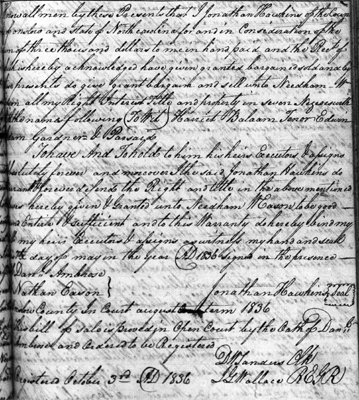 now all men by these Presents that I Jonathan Hawkins of the County
and State of North Carolina for and in Consideration of the
of three thousand dollars to me in hand paid and the Rect of
is hereby acknowledged have given granted bargained sold and by
presents do give grant bargain and sell unto Needham
all my Right Interest Title and property in seven Negroes with
names following To Wit Harriet Balaam
Gardner &
To have And to hold to him his heirs Executors & assigns
forever and moreover I the said Jonathan Hawkins do
forever defend the Right and title in the above mentioned
hereby given & granted unto Needham W Eason to be good
and Sufficient and to this Warranty do hereby bind my
my heirs Executors & assigns as witness my hand and seal
day of may in the year AD 1836 Signed in the presence
Danl Ambrose
Nathan Eason } Jonathan Hawkins Seal
County in Court august term 1836
This bill of Sale is proved in Open Court by the Oath of Danl
and Ordered to be Registered
Clk
Registered October 3rd AD 1836 Wallace